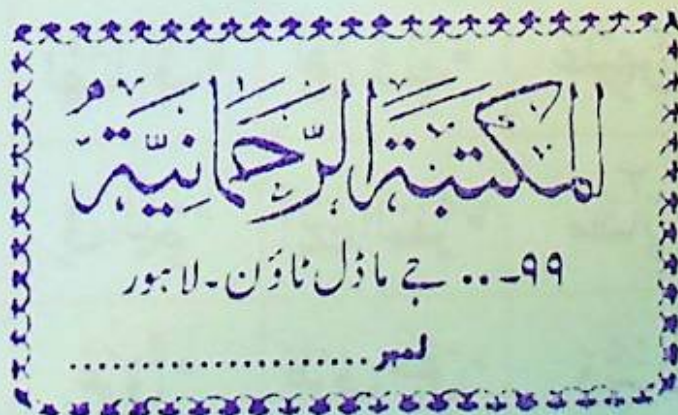 المكتبة الرَّحمَانيَّةُ
۹۹-.. جے ماڈل ٹاؤن ـ لاہور
نمبر ....................